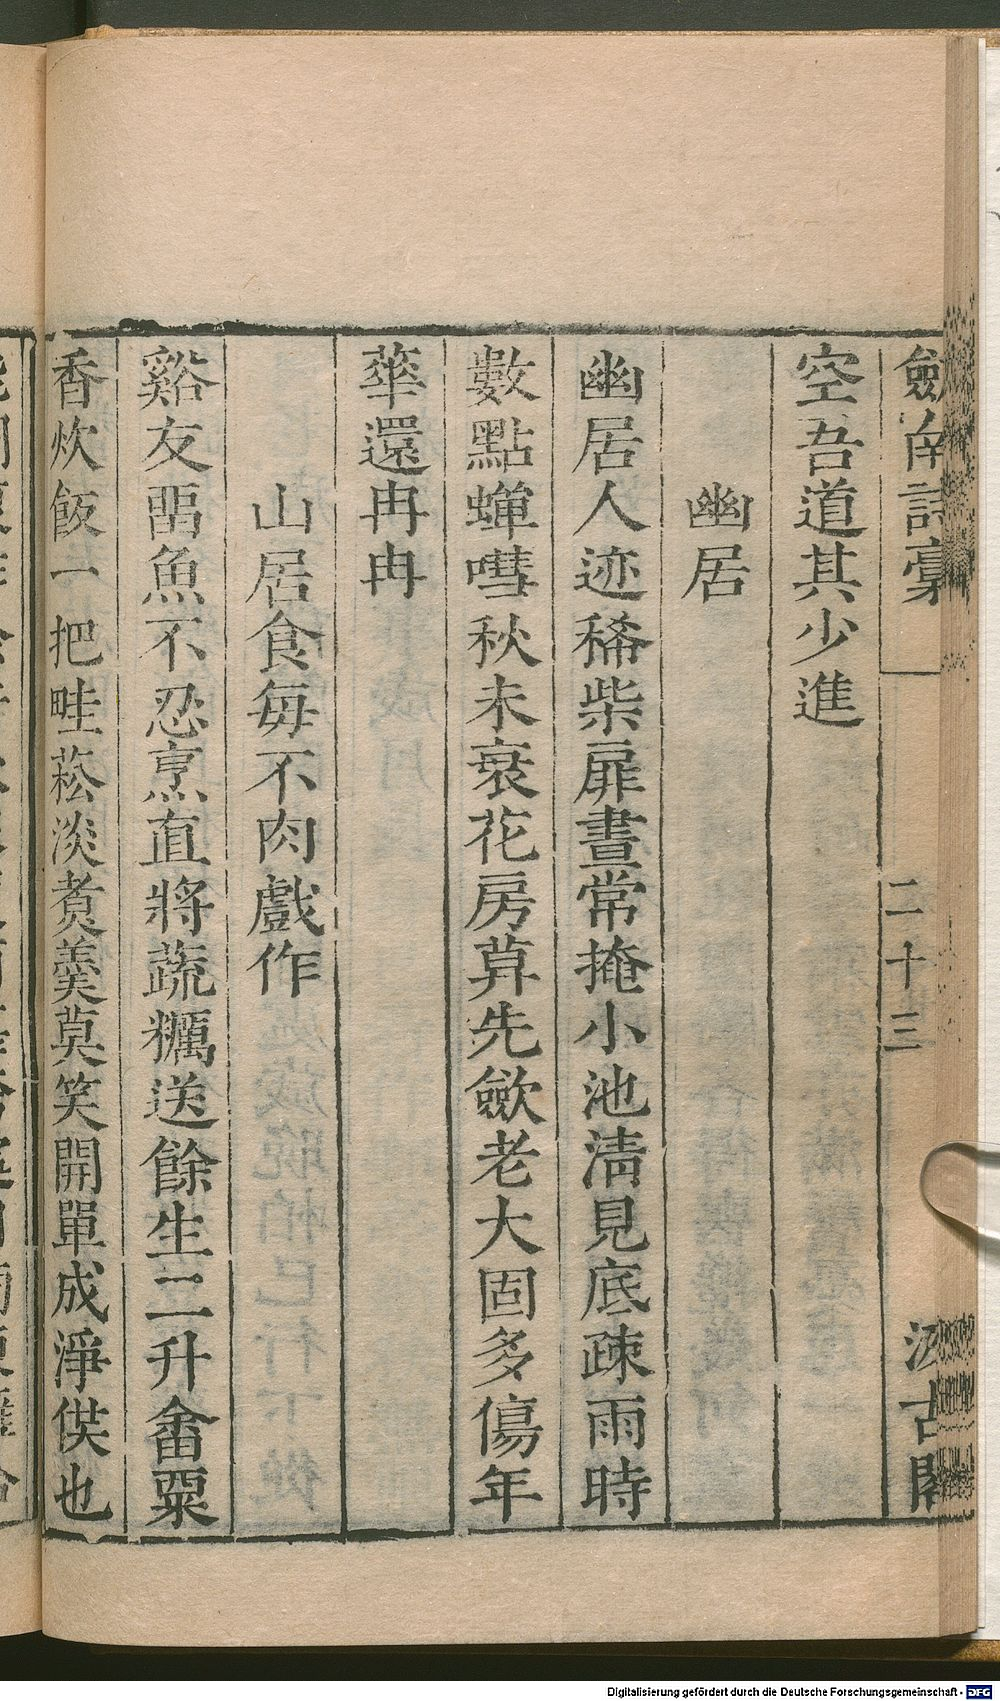 劒南詩藳
二十三
汲古閣
空吾道其少進
幽居
幽居人迹稀柴扉晝常掩小池淸見底疎雨時
數點蟬嘒秋未衰花房萛先斂老大固多傷年
華還冉冉
山居食每不肉戲作
谿友畱魚不忍烹直將蔬糲送餘生二升畬粟
香炊飯一把畦菘淡煑羹莫笑開單成淨供也
Digitalisierung gefördert durch die Deutsche Forschungsgemeinschaft - DFG